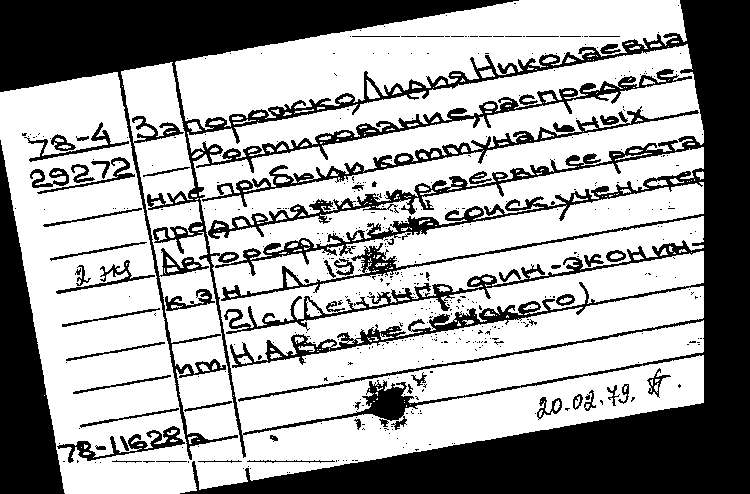 78-4 Запорожко, Лидия Николаевна
29272 Формирование, распределе-
ние прибыли коммунальных
предприятий и резервы ее роста.
Автореф. дис. на соиск. учен. степ.
2 экз
к.э.н. Л., 19
21с. (Ленингр. фин.-экон ин-
им. Н.А. Вознесенского).
20.02.79.
78-11628а